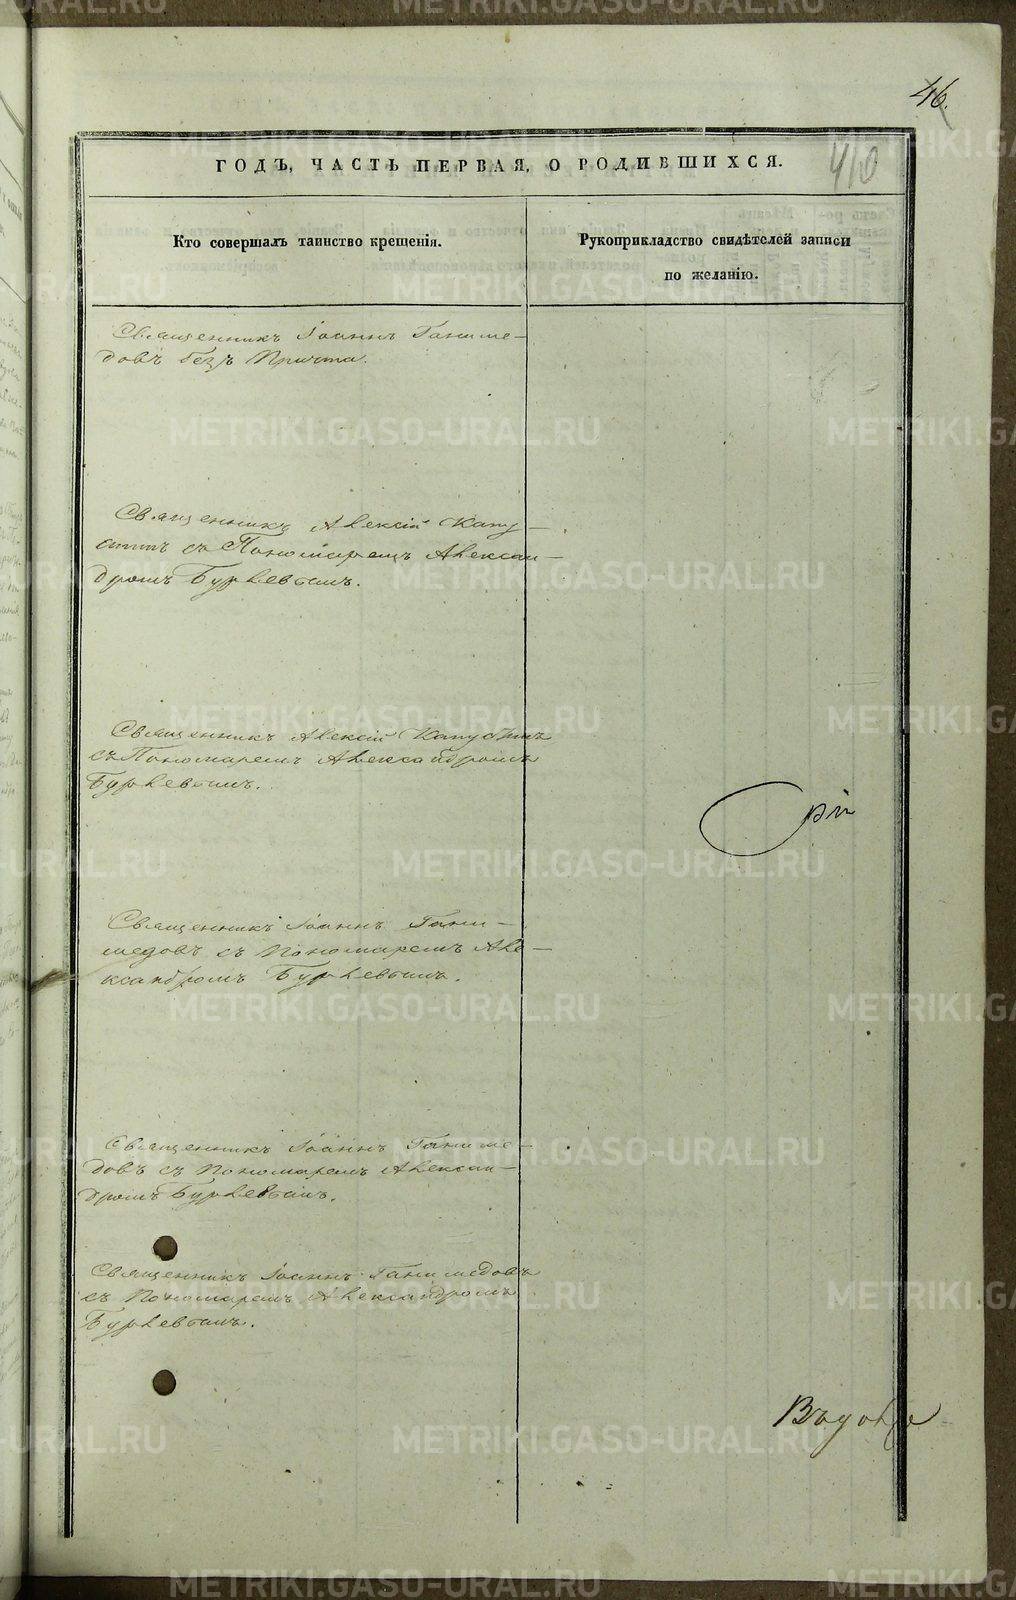 46.
410
ГОДЪ, ЧАСТЬ ПЕРВАЯ, О РОДИВШИХСЯ.
Кто совершалъ таинство крещенія.
Рукоприкладство свидѣтелей записи
по желанію.
Священникъ Іоаннъ Ганиме-
довъ безъ Причта.
Священникъ Алексій Капу-
стинъ съ Пономаремъ Алексан-
дромъ Бурлевымъ.
Священникъ Алексій Капустинъ
съ Пономаремъ Александромъ
Бурлевымъ.
Священникъ Іоаннъ Гани-
медовъ съ Пономаремъ Але-
ксандромъ Бурлевымъ.
Священникъ Іоаннъ Ганиме-
довъ съ Пономаремъ Алексан-
дромъ Бурлевымъ.
Священникъ Іоаннъ Ганимедовъ
съ Пономаремъ Александромъ
Бурлевымъ.
METRIKI.GASO-URAL.RU